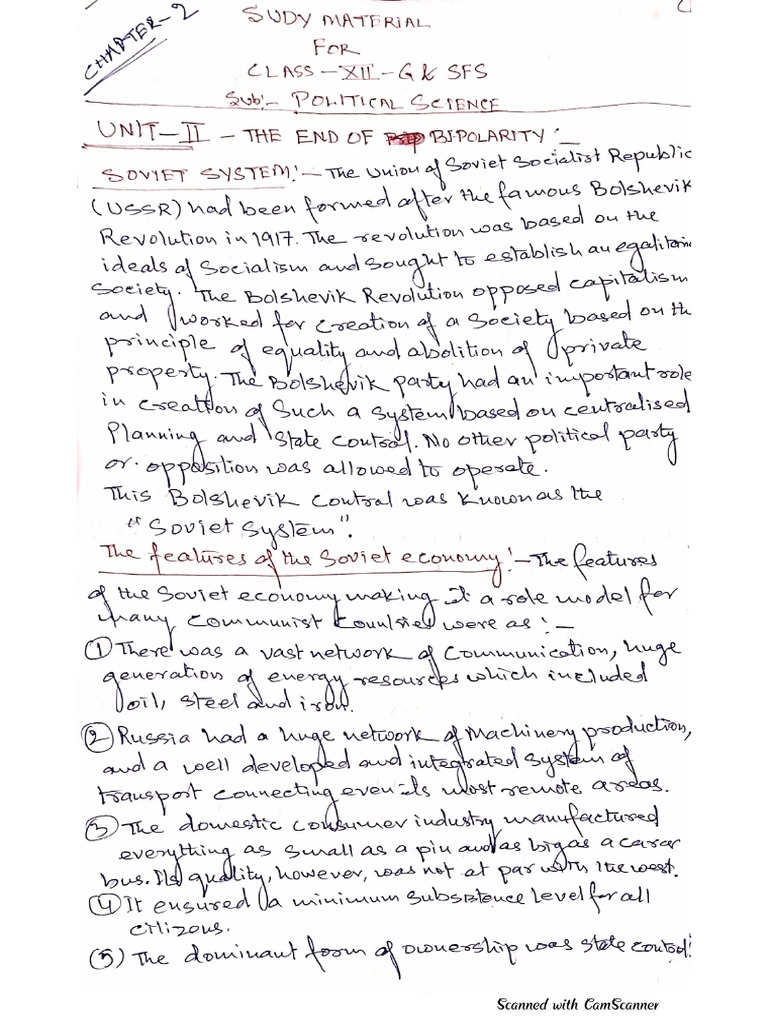 CHAPTER-2
SUDY MATERIAL
FOR
CLASS-XII-G & SFS
Sub:- POLITICAL SCIENCE
UNIT-II - THE END OF BIPOLARITY:-
SOVIET SYSTEM:- The Union of Soviet Socialist Republic
(USSR) had been formed after the famous Bolshevik
Revolution in 1917. The revolution was based on the
ideals of Socialism and sought to establish an egalitarian
Society. The Bolshevik Revolution opposed capitalism
and worked for creation of a Society based on th
principle of equality and abolition of private
property. The Bolshevik party had an important role
in creation of Such a system based on centralised
Planning and State control. No other political party
or opposition was allowed to operate.
This Bolshevik Control was known as the
"Soviet System".
The features of the Soviet economy:- The features
of the Soviet economy making it a role model for
many Communist Countries were as:-
① There was a vast network of Communication, huge
generation of energy resources which included
oil, steel and iron.
② Russia had a huge network of Machinery production,
and a well developed and integrated system of
transport connecting even its most remote areas.
③ The domestic consumer industry manufactured
everything as small as a pin and as big as a car or
bus. Its quality, however, was not at par with the west.
④ It ensured a minimum subsistence level for all
citizens.
(5) The dominant form of ownership was state control.
Scanned with CamScanner